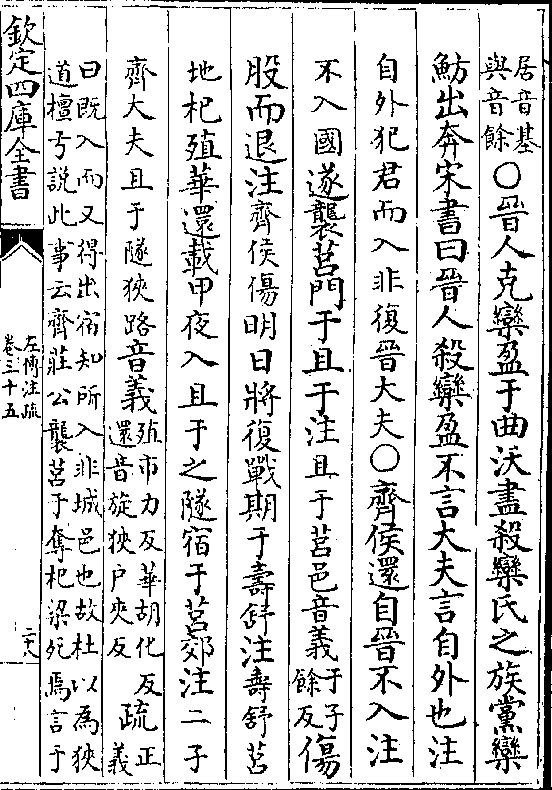 居音基
與音餘
○晉人克欒盈于曲沃盡殺欒氏之族黨欒
魴出奔宋書曰晉人殺欒盈不言大夫言自外也注
自外犯君而入非復晉大夫○齊侯還自晉不入注
不入國遂襲莒門于且于注且于莒邑音義
且子
餘反
傷
股而退注齊侯傷明日將復戰期于壽舒注壽舒莒
地杞殖華還載甲夜入且于之隧宿于莒郊注二子
齊大夫且于隧狹路音義
殖市力反華胡化反
還音旋狹户夾反
疏
正
義
曰既入而又得出宿知所入非城邑也故杜以為狹
道檀弓説此事云齊莊公襲莒于奪杞梁死焉言于
欽定四庫全書
左傳注疏
卷三十五
二六